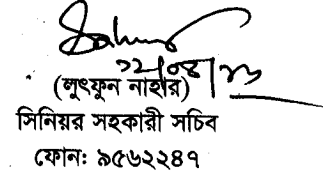 ২২/০৪/২৩
(লুৎফুন নাহার)
সিনিয়র সহকারী সচিব
ফোন: ৯৫৬২২৪৭